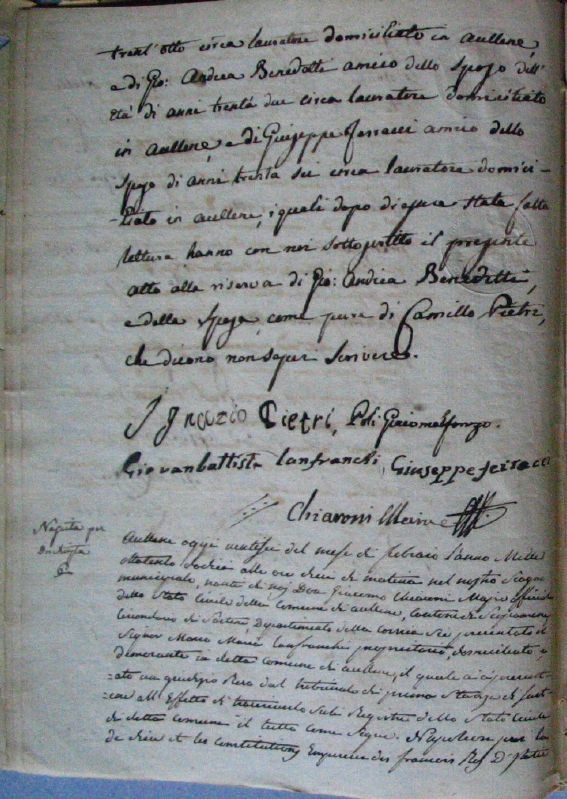 trent'otto circa lauratore domiciliato in aullene,
e di Gio: Andrea Benedetti amico dello Sposo dell'
Età di anni trenta due circa lauratore domiciliato
in aullene, e di Giuseppe Ferracci amico dello
Sposo di anni trenta sei circa lauratore domici-
-liato in aullene, i quali dopo di essere stata fatta
lettura hanno con noi sottoscritto il presente
atto alla riserva di Gio: Andrea Benedetti,
e della Sposa, come pure di Camillo Pietri,
che dicono non saper scrivere.
Ignazio Pietri, Poli Giacomalfonzo.
Giovanbattista Lanfranchi, Giuseppe ferracci
Chiaroni Maire
Aullene oggi del mese di febraio l'anno Mille
otto cento dodici alle ore dieci di matina nel nostro
municipale, nanti di noi Don Giacomo Chiaroni Maire
dello Stato Civile della Comune di aullene,
Dipartimento della Corsica Si è presentato il
Signor Marco Maria Lanfranchi proprietario, domiciliato, e
dimorante in detta comune di aullene, il quale ci à presen-
-tato un giudizio Reso dal tribunale di prima Stanza di Sar-
all'Effetto di Sul Registro dello Stato Civile
di detta comune il tutto come Segue. Napoleon par la
de dieu et les constitutions Empereur des francais Roy D'Italie